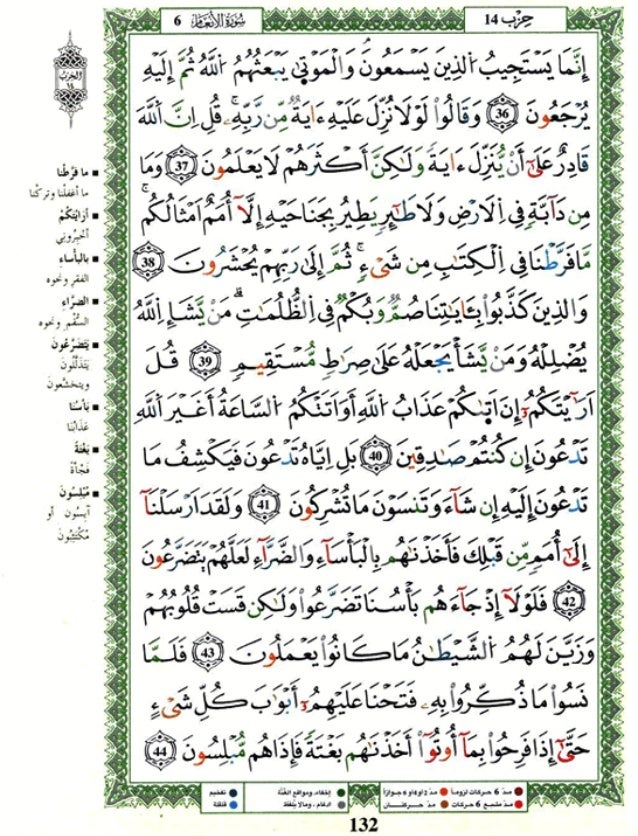 حِزْب 14
سُورَةُ الأَنْعَام 6
إِنَّمَا يَسْتَجِيبُ الذِينَ يَسْمَعُونَ وَالْمَوْتَىٰ يَبْعَثُهُمُ اللَّهُ ثُمَّ إِلَيْهِ
يُرْجَعُونَ 36 وَقَالُوا لَوْلَا نُزِّلَ عَلَيْهِ ءَايَةٌ مِّن رَّبِّهِۦ قُلِ انَّ اللَّهَ
قَادِرٌ عَلَىٰ أَنْ يُّنَزِّلَ ءَايَةً وَلَٰكِنَّ أَكْثَرَهُمْ لَا يَعْلَمُونَ 37 وَمَا
مِن دَآبَّةٍ فِي اِلَارْضِ وَلَا طَٰٓئِرٍ يَطِيرُ بِجَنَاحَيْهِ إِلَّآ أُمَمٌ اَمْثَالُكُم
مَّا فَرَّطْنَا فِي اِلْكِتَٰبِ مِن شَيْءٍ ثُمَّ إِلَىٰ رَبِّهِمْ يُحْشَرُونَ 38
وَالذِينَ كَذَّبُوا بِـَٔايَٰتِنَا صُمٌّ وَبُكْمٌ فِي اِلظُّلُمَٰتِ مَنْ يَّشَإِ اِللَّهُ
يُضْلِلْهُ وَمَنْ يَّشَأْ يَجْعَلْهُ عَلَىٰ صِرَٰطٍ مُّسْتَقِيمٍ 39 قُلَ
اَرَٰٓيْتَكُمُۥٓ إِنَ اَتَىٰكُمْ عَذَابُ اللَّهِ أَوَ اَتَتْكُمُ السَّاعَةُ أَغَيْرَ اَللَّهِ
تَدْعُونَ إِن كُنتُمْ صَٰدِقِينَ 40 بَلِ اِيَّاهُ تَدْعُونَ فَيَكْشِفُ مَا
تَدْعُونَ إِلَيْهِ إِن شَآءَ وَتَنسَوْنَ مَا تُشْرِكُونَ 41 وَلَقَدَ اَرْسَلْنَآ
إِلَىٰٓ أُمَمٍ مِّن قَبْلِكَ فَأَخَذْنَٰهُم بِالْبَأْسَآءِ وَالضَّرَّآءِ لَعَلَّهُمْ يَتَضَرَّعُونَ
42 فَلَوْلَآ إِذْ جَآءَهُم بَأْسُنَا تَضَرَّعُوا وَلَٰكِن قَسَتْ قُلُوبُهُمْ
وَزَيَّنَ لَهُمُ الشَّيْطَٰنُ مَا كَانُوا يَعْمَلُونَ 43 فَلَمَّا
نَسُوا مَا ذُكِّرُوا بِهِۦ فَتَحْنَا عَلَيْهِمُۥٓ أَبْوَٰبَ كُلِّ شَيْءٍ
حَتَّىٰٓ إِذَا فَرِحُوا بِمَآ أُوتُوٓا أَخَذْنَٰهُم بَغْتَةً فَإِذَا هُم مُّبْلِسُونَ 44
الحزب
١٤
■ ما فرَّطْنا
ما أغفلْنا وتركْنا
■ أَرَايْتَكُمْ
أخبِروني
■ بالبأساءِ
الفقرِ ونحوِه
■ الضرَّاءِ
السُّقْمِ ونحوِه
■ يتضرَّعون
يتذلَّلُون
ويتخشَّعون
■ بأسُنا
عَذابُنا
■ بَغْتةً
فَجْأةً
■ مُبْلِسُونَ
آيِسُون أو
مُكْتَئِبُون
مدّ 6 حركات لزوماً مدّ 2 أو 4 أو 6 جوازاً
إخفاء، ومواقع الغُنَّة تفخيم
مدّ مشبع 6 حركات مدّ حركتان
ادغام، وما لا يُلفظ قلقلة
132